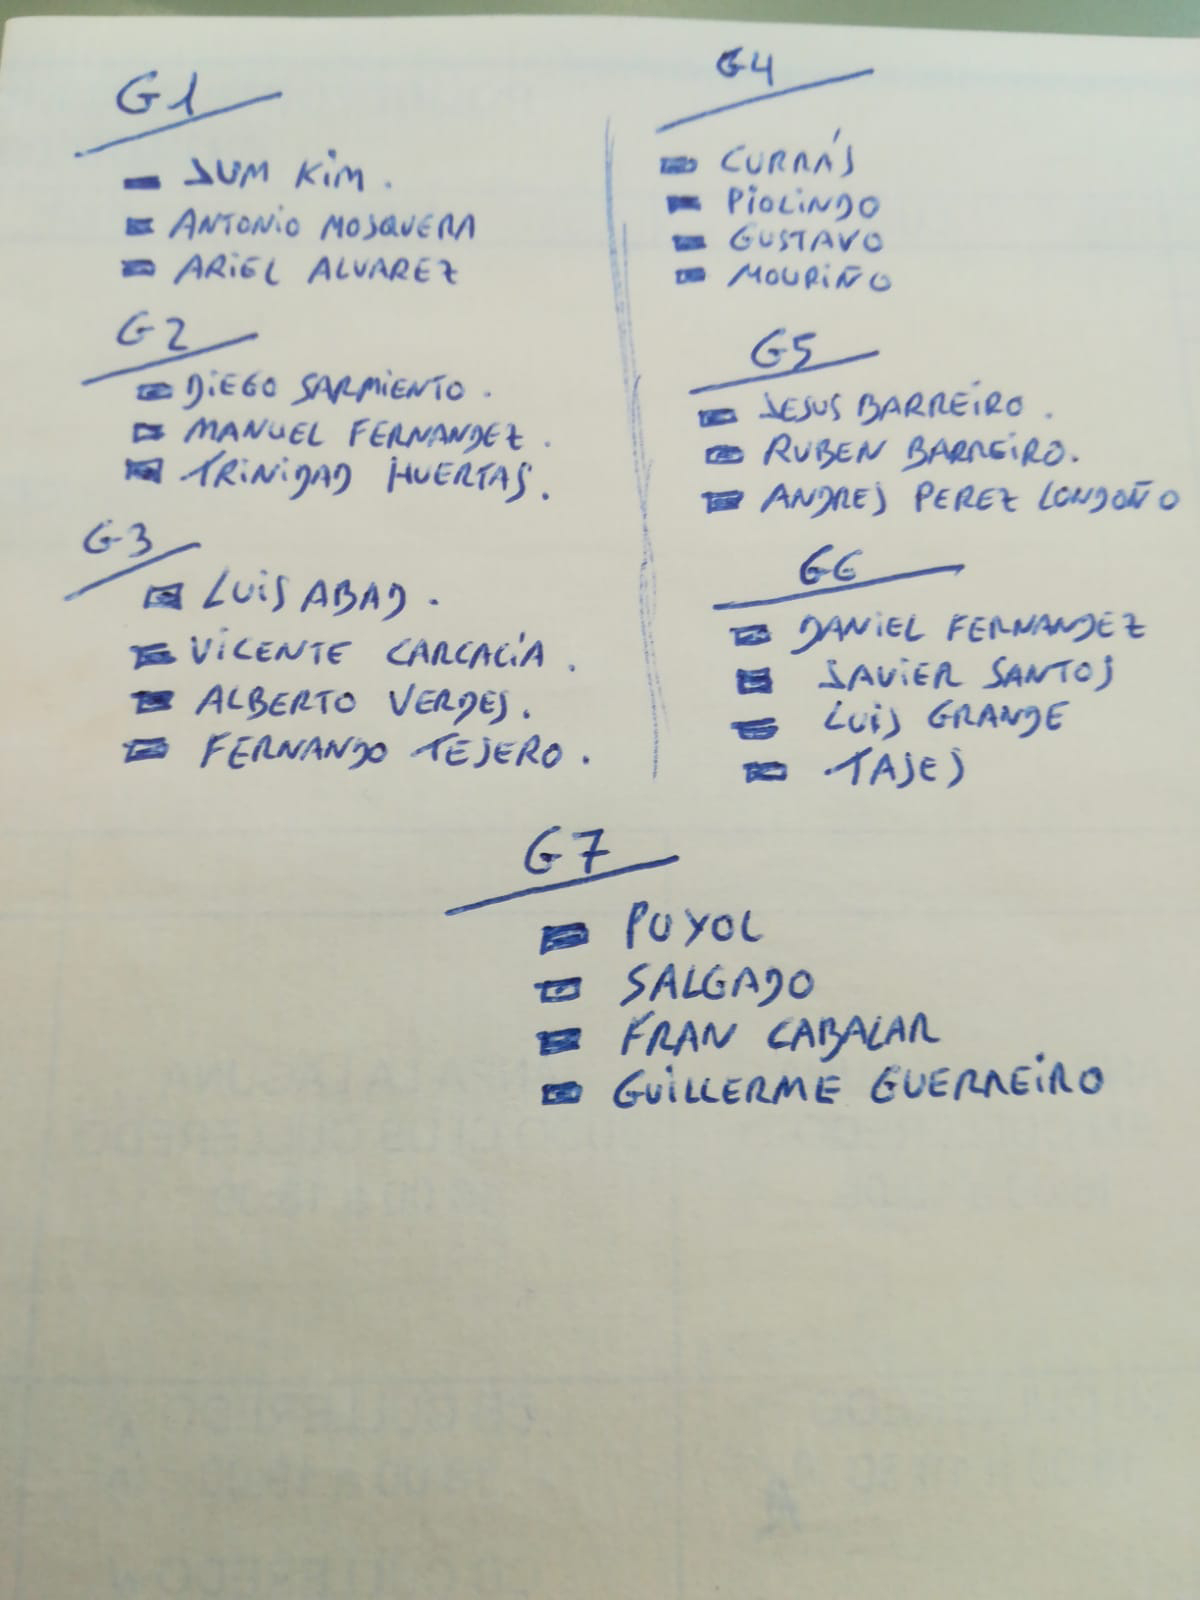 G1
JUM KIM.
ANTONIO MOSQUERA
ARIEL ALVAREZ
G2
DIEGO SARMIENTO.
MANUEL FERNANDEZ.
TRINIDAD HUERTAS.
G3
LUIS ABAD.
VICENTE CARCACÍA.
ALBERTO VERDES.
FERNANDO TEJERO.
G4
CURRÁS
PIOLINDO
GUSTAVO
MOURIÑO
G5
JESUS BARREIRO.
RUBEN BARREIRO.
ANDRES PEREZ LONDOÑO
G6
DANIEL FERNANDEZ
JAVIER SANTOS
LUIS GRANDE
TAJES
G7
PUYOL
SALGADO
FRAN CABALAR
GUILLERME GUERREIRO